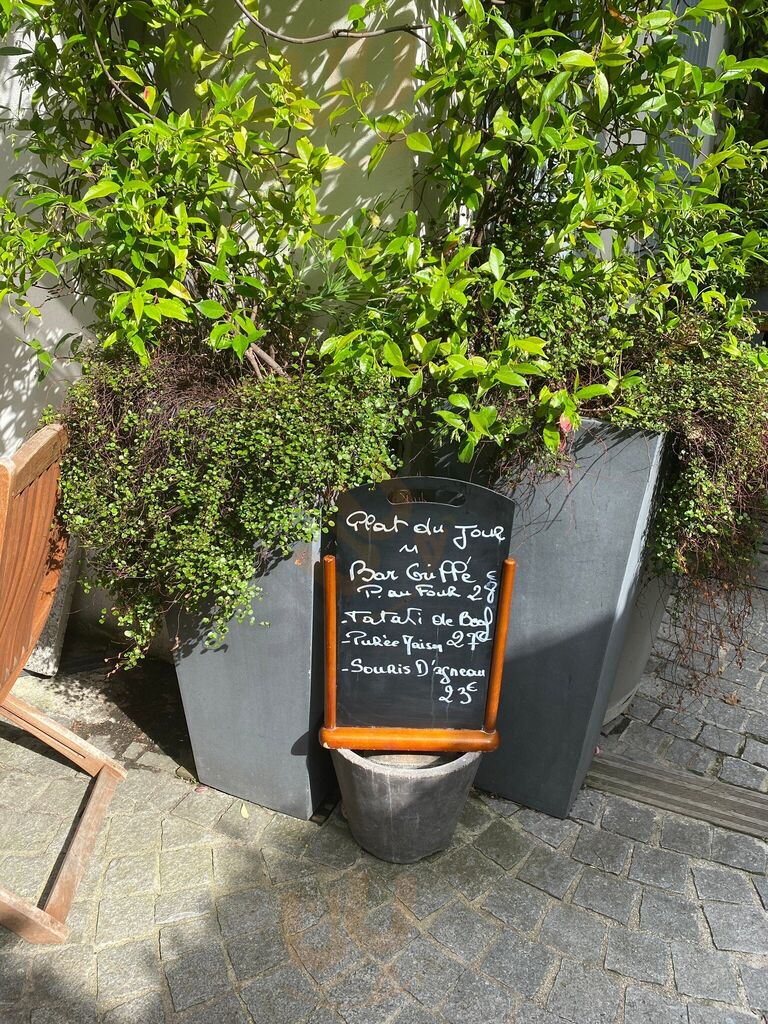 Plat du Jour
Bar Griffé
P. au Four 28€
-Tataki de Bœuf
-Purée Maison 27€
-Souris D'agneau
23€